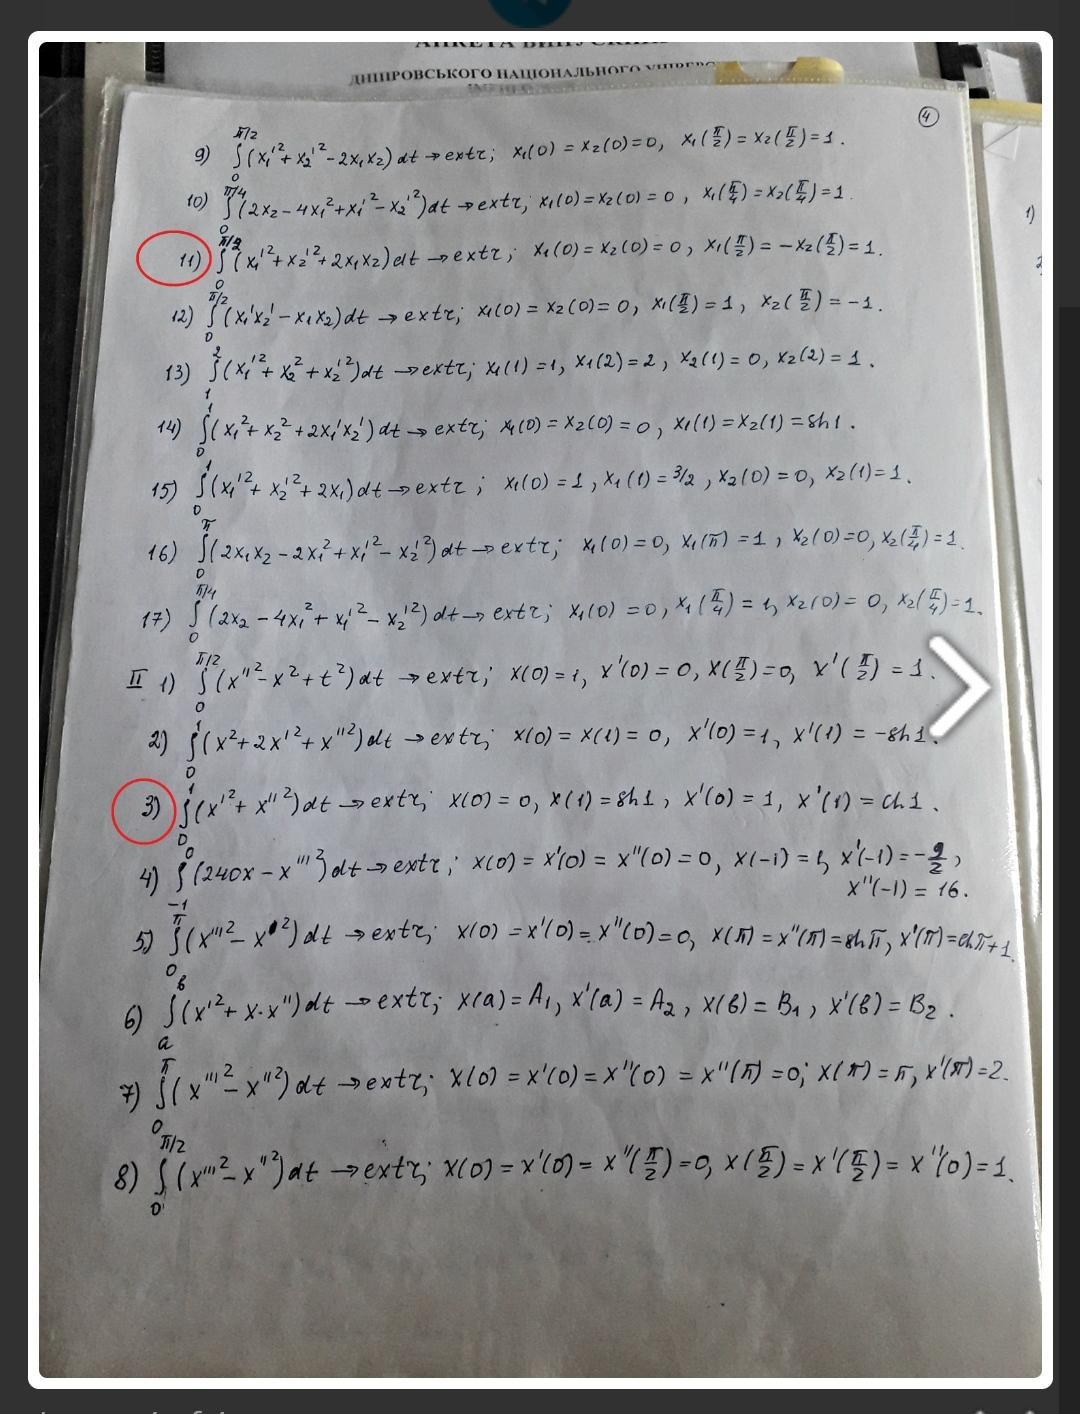 АНКЕТА ВИПУСКНИ
ДНІПРОВСЬКОГО НАЦІОНАЛЬНОГО УНІВЕРС
4
9) ∫₀^{π/2} (x₁'² + x₂'² - 2x₁x₂) dt → extr; x₁(0) = x₂(0) = 0, x₁(π/2) = x₂(π/2) = 1.
10) ∫₀^{π/4} (2x₂ - 4x₁² + x₁'² - x₂'²) dt → extr; x₁(0) = x₂(0) = 0, x₁(π/4) = x₂(π/4) = 1.
11) ∫₀^{π/2} (x₁'² + x₂'² + 2x₁x₂) dt → extr; x₁(0) = x₂(0) = 0, x₁(π/2) = -x₂(π/2) = 1.
12) ∫₀^{π/2} (x₁'x₂' - x₁x₂) dt → extr; x₁(0) = x₂(0) = 0, x₁(π/2) = 1, x₂(π/2) = -1.
13) ∫₁² (x₁'² + x₂² + x₂'²) dt → extr; x₁(1) = 1, x₁(2) = 2, x₂(1) = 0, x₂(2) = 1.
14) ∫₀¹ (x₁² + x₂² + 2x₁'x₂') dt → extr; x₁(0) = x₂(0) = 0, x₁(1) = x₂(1) = sh1.
15) ∫₀¹ (x₁'² + x₂'² + 2x₁) dt → extr; x₁(0) = 1, x₁(1) = 3/2, x₂(0) = 0, x₂(1) = 1.
16) ∫₀^π (2x₁x₂ - 2x₁² + x₁'² - x₂'²) dt → extr; x₁(0) = 0, x₁(π) = 1, x₂(0) = 0, x₂(π/4) = 1.
17) ∫₀^{π/4} (2x₂ - 4x₁² + x₁'² - x₂'²) dt → extr; x₁(0) = 0, x₁(π/4) = 1, x₂(0) = 0, x₂(π/4) = 1.
II 1) ∫₀^{π/2} (x''² - x² + t²) dt → extr; x(0) = 1, x'(0) = 0, x(π/2) = 0, x'(π/2) = 1.
2) ∫₀¹ (x² + 2x'² + x''²) dt → extr; x(0) = x(1) = 0, x'(0) = 1, x'(1) = -sh1.
3) ∫₀¹ (x'² + x''²) dt → extr; x(0) = 0, x(1) = sh1, x'(0) = 1, x'(1) = ch1.
4) ∫₋₁⁰ (240x - x'''²) dt → extr; x(0) = x'(0) = x''(0) = 0, x(-1) = 1, x'(-1) = -9/2,
x''(-1) = 16.
5) ∫₀^π (x'''² - x''²) dt → extr; x(0) = x'(0) = x''(0) = 0, x(π) = x''(π) = shπ, x'(π) = chπ+1.
6) ∫ₐᵇ (x'² + x·x'') dt → extr; x(a) = A₁, x'(a) = A₂, x(b) = B₁, x'(b) = B₂.
7) ∫₀^π (x'''² - x''²) dt → extr; x(0) = x'(0) = x''(0) = x''(π) = 0; x(π) = π, x'(π) = 2.
8) ∫₀^{π/2} (x'''² - x''²) dt → extr; x(0) = x'(0) = x''(π/2) = 0, x(π/2) = x'(π/2) = x''(0) = 1.
1)